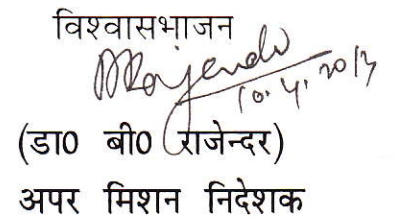 विश्वासभाजन
Rajendr
10.4.2013
(डा0 बी0 राजेन्दर)
अपर मिशन निदेशक